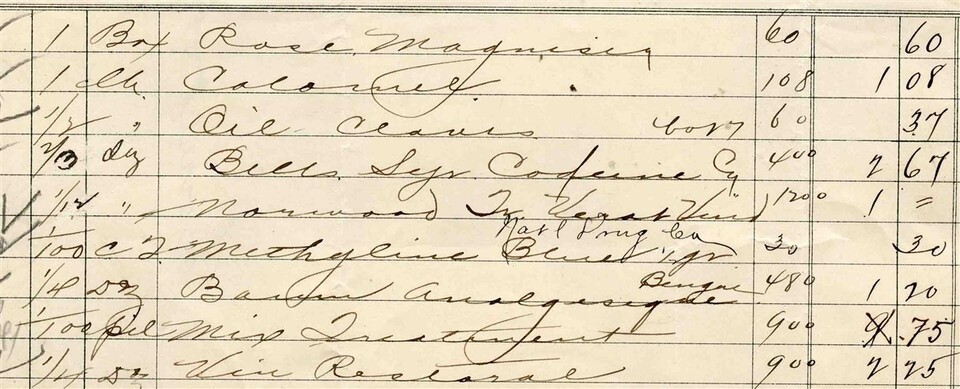 1 Box Rose Magnisia 60 60
1 lb. Calomel 108 1 08
1/2 " Oil Claves bot 7 60 37
2/3 Dz Bells Syr Codeine Cy 400 2 67
1/12 " Norwood Tr Verat Vird 1200 1 =
Nat'l Drug Co
1/100 C T Methyline Blue 1 gr 30 30
1/4 Dz Baum Analgesique Bengue 480 1 20
1/100 Mix Treatment 900 .75
1/4 Dz Vin Restoral 900 2 25